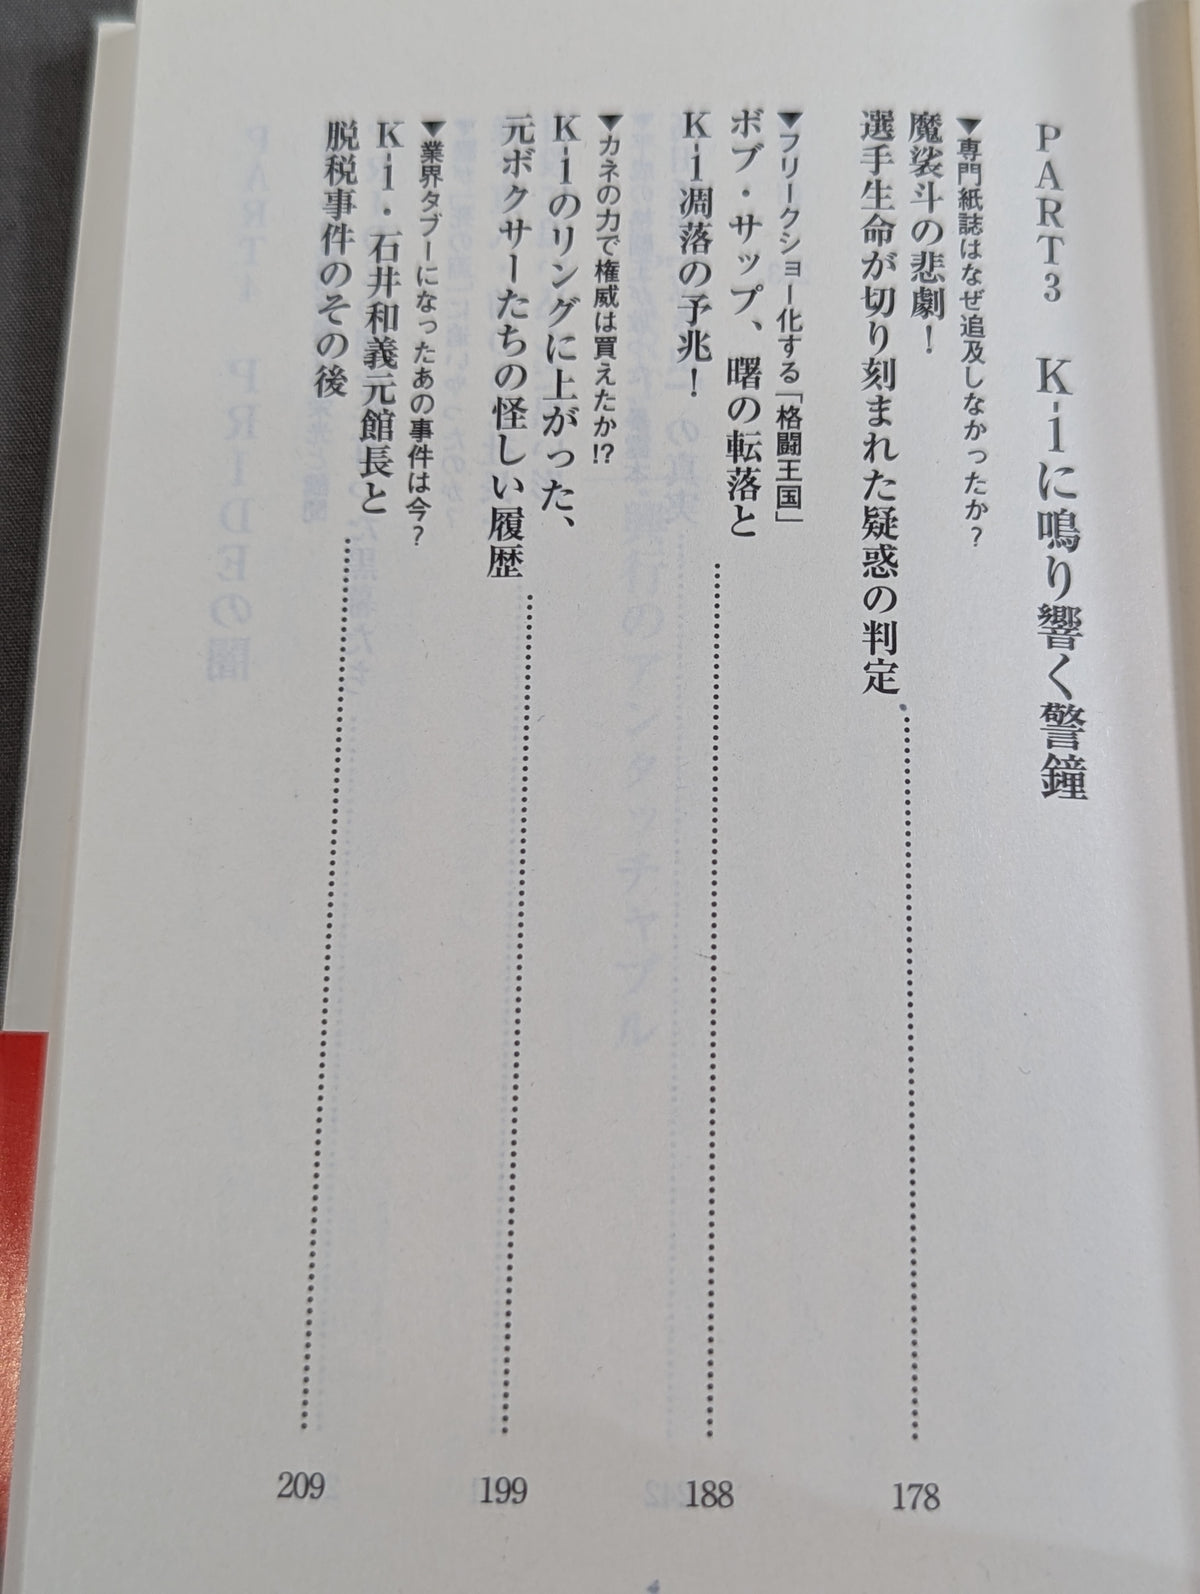 PART3 K-1に鳴り響く警鐘
▼専門紙誌はなぜ追及しなかったか？
魔裟斗の悲劇！
選手生命が切り刻まれた疑惑の判定
178
▼フリークショー化する「格闘王国」
ボブ・サップ、曙の転落と
K-1凋落の予兆！
188
▼カネの力で権威は買えたか!?
K-1のリングに上がった、
元ボクサーたちの怪しい履歴
199
▼業界タブーになったあの事件は今？
K-1・石井和義元館長と
脱税事件のその後
209
PART4 PRIDEの闇